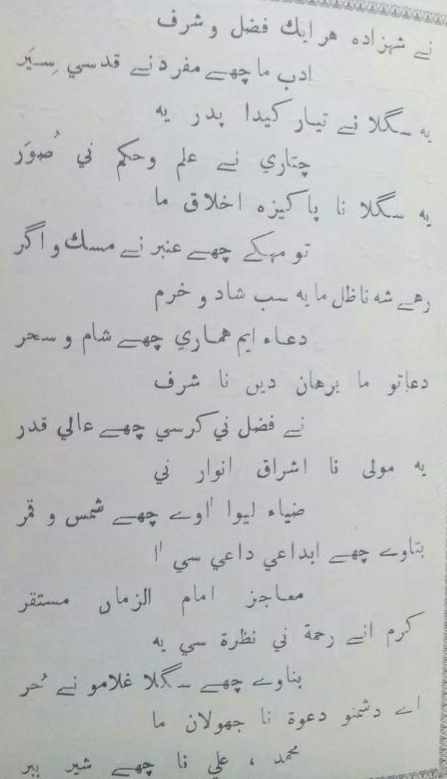 نے شهزاده هر ايك فضل و شرف
ادب ما چھے مفرد نے قدسي سِيَر
يه سگلا نے تيار كيدا پدر يه
چتاري نے علم وحكم ني صُوَر
يه سگلا نا پاكيزه اخلاق ما
تو مهكے چھے عنبر نے مسك و اگر
رهے شه نا ظل ما يه سب شاد و خرم
دعاء ايم هماري چھے شام و سحر
دعاتو ما برهان دين نا شرف
نے فضل ني كرسي چھے عالي قدر
يه مولى نا اشراق انوار ني
ضياء ليوا اٰوے چھے شمس و قمر
بتاوے چھے ابداعي داعي سي اٰ
معاجز امام الزمان مستقر
كرم انے رحمة ني نظرة سي يه
بناوے چھے سگلا غلامو نے حُر
اے دشمنو دعوة نا جهولان ما
محمد ، علي نا چھے شير ببر